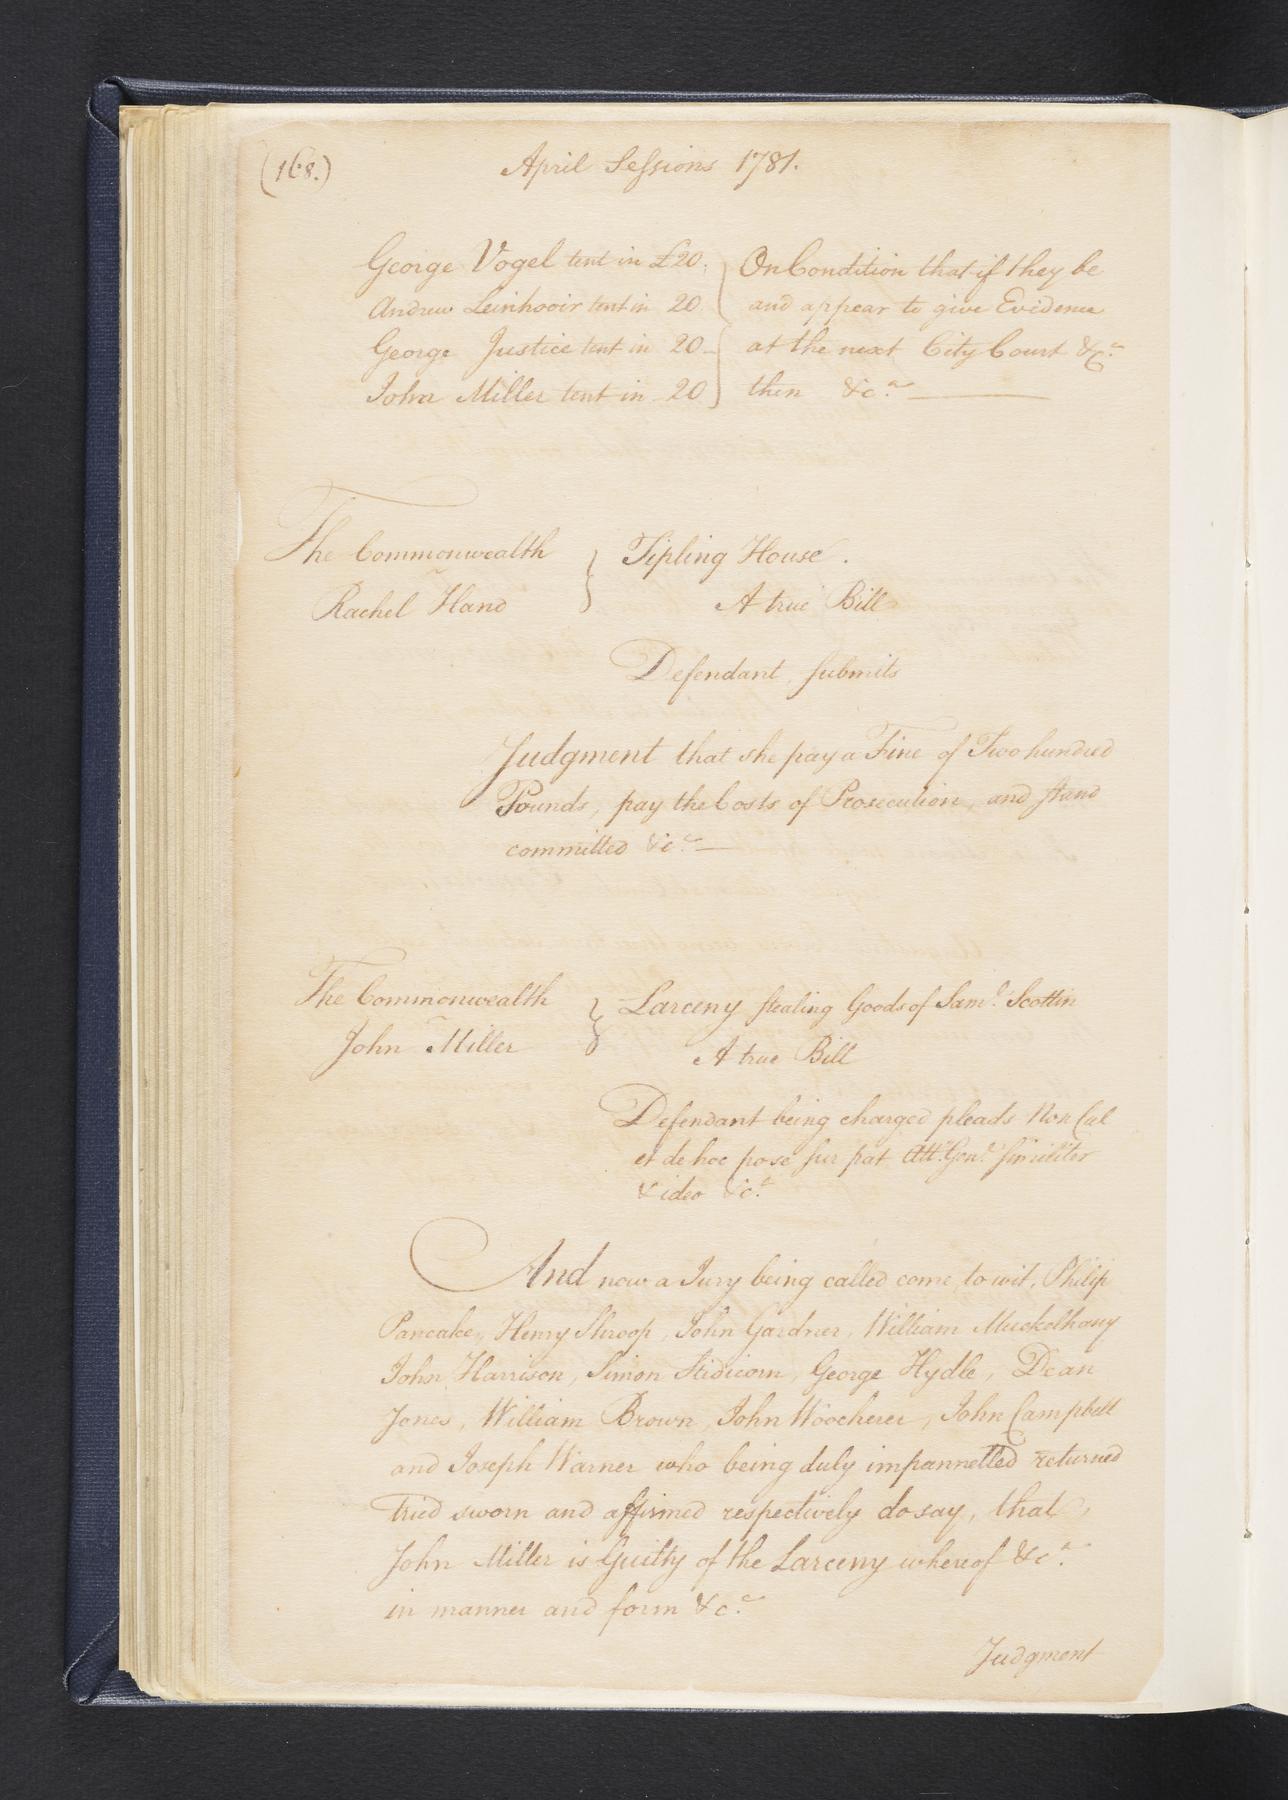 (168.) April Sessions 1781.
George Vogel tent in £20. } On Condition that if they be
Andrew Leinhooir tent in 20 and appear to give Evidence
George Justice tent in 20 at the next City Court &c.a
John Miller tent in 20 then &c.a
The Commonwealth } Tipling House.
~
Rachel Hand A true Bill
Defendant, submits
Judgment that she pay a Fine of Two hundred
Pounds, pay the Costs of Prosecution, and stand
committed &c.a
The Commonwealth } Larceny stealing Goods of Sam.l Scottin
~
John Miller A true Bill
Defendant being charged pleads Non Cul
et de hoc pose sur pat Att.y Gen.l similiter
& ideo &c.a
And now a Jury being called come, to wit, Philip
Pancake, Henry Shroop, John Gardner, William Muckolhany
John Harrison, Simon Stidicorn, George Hydle, Dean
Jones, William Brown, John Woocherer, John Campbell
and Joseph Warner who being duly impannelled returned
tried sworn and affirmed respectively do say, that,
John Miller is Guilty of the Larceny whereof &c.a
in manner and form &c.a
Judgment